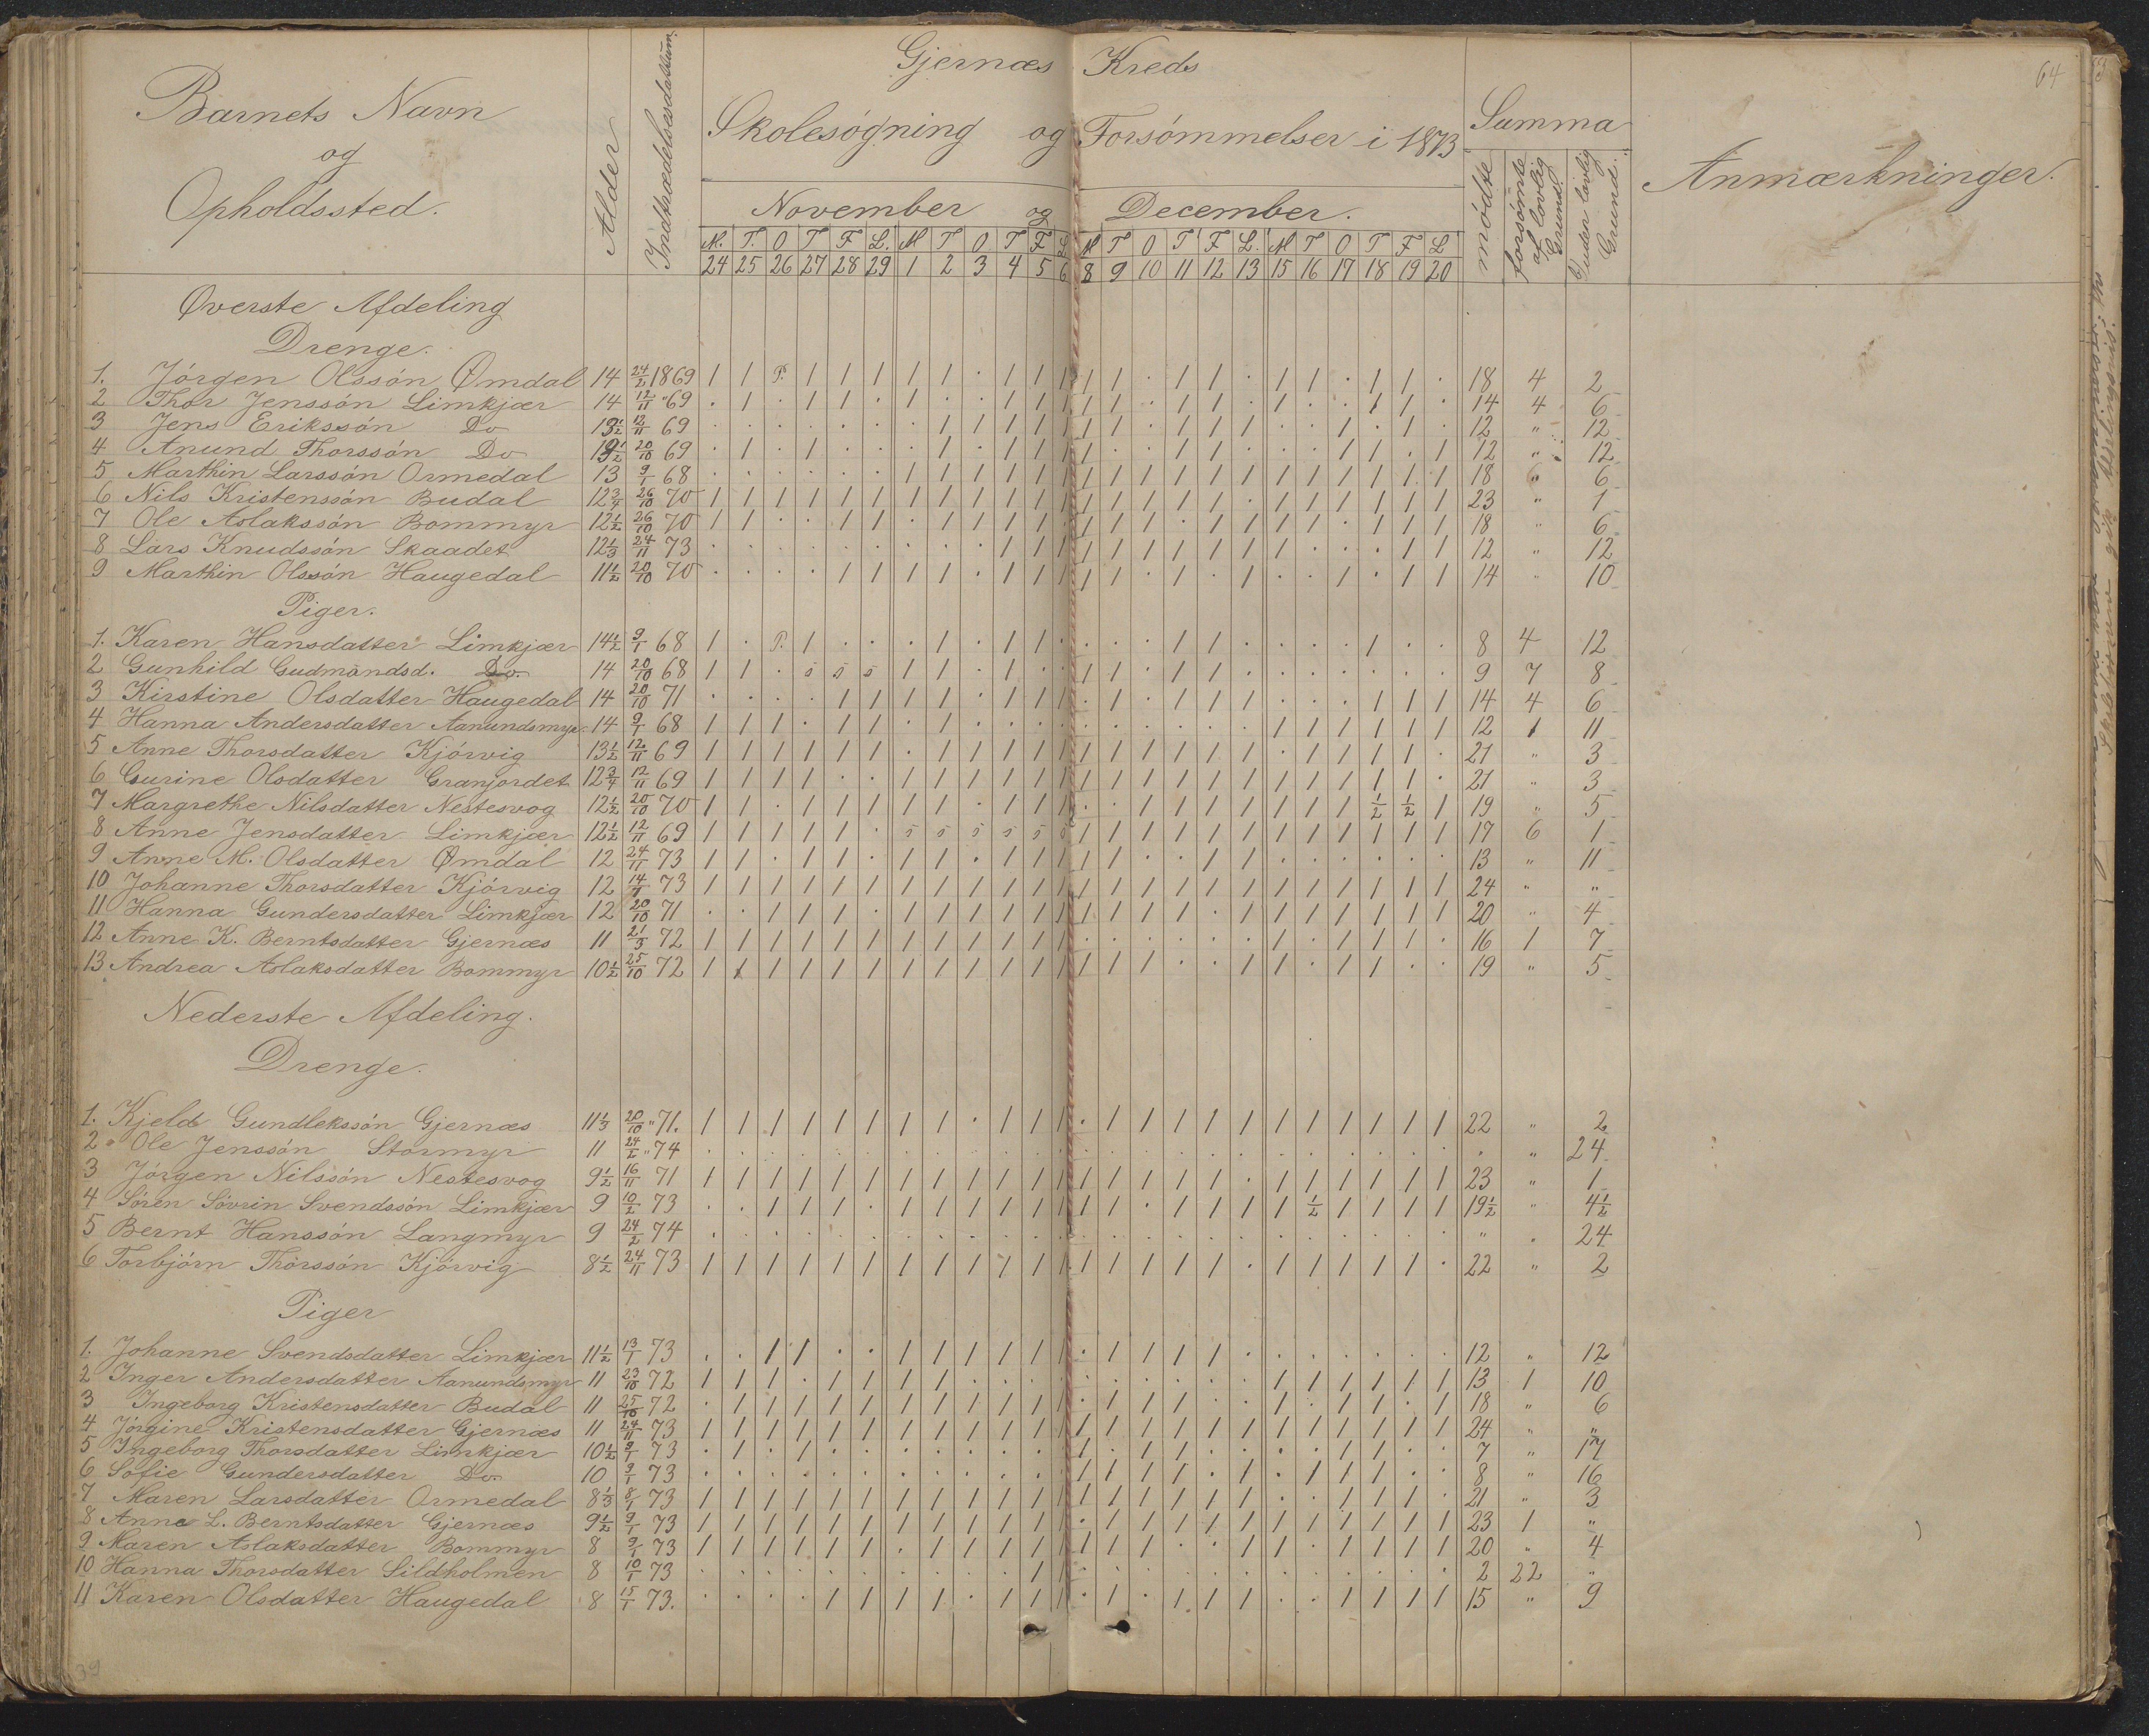 64
Gjernæs Kreds
Barnets Navn og Opholdssted.
Alder
Indtrædelsesdatum.
Skolesøgning og Forsømmelser i 1873
Summa
Anmærkninger.
November og December.
mødte
forsømte af lovlig Grund.
uden lovlig Grund.
M. T. O T F L. M T O T F L M T O T F L. M T O T F L
24 25 26 27 28 29 1 2 3 4 5 6 8 9 10 11 12 13 15 16 17 18 19 20
Øverste Afdeling
Drenge.
1. Jórgen Olssón Ømdal 14 24/2 1869 18 4 2
2 Thor Jenssón Limkjær 14 12/11 "69 14 4 6
3 Jens Erikssón Do 13 1/2 12/11 69 12 " 12
4 Anund Thorssón Do 20/10 69 12 " 12
5 Marthin Larssón Ormedal 13 9/1 68 18 6
6 Nils Kristenssón Budal 12 3/4 26/10 70 23 " 1
7 Ole Aslakssón Bommyr 12 1/2 26/10 70 18 " 6
8 Lars Knudssón Skaadet 12 1/3 24/11 73 12 " 12
9 Marthin Olssón Haugedal 11 1/2 20/10 70 14 " 10
Piger.
1. Karen Hansdatter Limkjær 14 1/2 9/1 68 8 4 12
2 Gunhild Gudmandsd. Do. 14 20/10 68 9 7 8
3 Kirstine Olsdatter Haugedal 14 20/10 71 14 4 6
4 Hanna Andersdatter Aanundsmyr 14 9/1 68 12 1 11
5 Anne Thorsdatter Kjórvig 13 1/2 12/11 69 21 " 3
6 Gurine Olsdatter Granjordet 12 3/4 12/11 69 21 " 3
7 Margrethe Nilsdatter Nestesvog 12 1/2 20/10 70 1/2 1/2 19 " 5
8 Anne Jensdatter Limkjær 12 1/2 12/11 69 17 6 1
9 Anne M. Olsdatter Ømdal 12 24/11 73 13 " 11
10 Johanne Thorsdatter Kjórvig 12 73 24 " "
11 Hanna Gundersdatter Limkjær 12 20/10 71 20 " 4
12 Anne K. Berntsdatter Gjernæs 11 21/3 72 16 1 7
13 Andrea Aslaksdatter Bommyr 10 1/2 25/10 72 19 " 5
Nederste Afdeling.
Drenge.
1. Kjeld Gundlekssón Gjernæs 11 1/3 20/10 "71. 22 " 2
2 Ole Jenssón Stormyr 11 24/2 "74 " " 24
3 Jórgen Nilssón Nestesvog 9 1/2 16/11 71 23 " 1
4 Sóren Sóvrin Svendssón Limkjær 9 10/2 73 1/2 19 1/2 " 4 1/2
5 Bernt Hanssón Langmyr 9 24/2 74 " " 24
6 Torbjórn Thorssón Kjórvig 8 1/2 24/11 73 22 " 2
Piger
1. Johanne Svendsdatter Limkjær 11 1/2 13/1 73 12 " 12
2 Inger Andersdatter Aanundsmyr 11 23/10 72 13 1 10
3 Ingeborg Kristensdatter Budal 11 25/10 72 18 " 6
4 Jórgine Kristensdatter Gjernæs 11 24/11 73 24 " "
5 Ingeborg Thorsdatter Limkjær 10 1/2 9/1 73 7 " 17
6 Sofie Gundersdatter Do. 10 9/1 73 8 " 16
7 Maren Larsdatter Ormedal 8 1/3 8/1 73 21 " 3
8 Anne L. Berntsdatter Gjernæs 9 1/2 9/1 73 23 1 "
9 Maren Aslaksdatter Bommyr 8 9/1 73 20 " 4
10 Hanna Thorsdatter Sildholmen 8 10/1 73 2 22 "
11 Karen Olsdatter Haugedal 8 15/1 73. 15 " 9
39